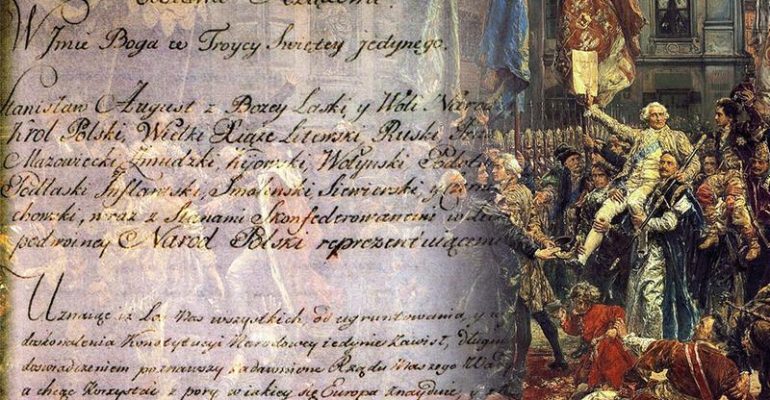 Rządowa.
W Jmie Boga w Troycy Świętey jedynego.
tanisław August z Bożey Łaski y Woli Narod
Krol Polski, Wielki Xiąże Litewski, Ruski,
Mazowiecki, Żmudzki, Kijowski, Wołyński,
Podlaski, Inflantski, Smoleński, Siewierski, y
chowski, wraz z Stanami Skonfederowanemi w
podwoiney Narod Polski reprezentuiącemi
Uznaiąc iż Los Nas wszystkich, od ugruntowania, y
doskonalenia Konstytucyi Narodowey iedynie zawisł, długim
doświadczeniem poznawszy zadawnione Rządu Naszego Wady
a chcąc korzystać z pory w iakiey się Europa znayduie, y